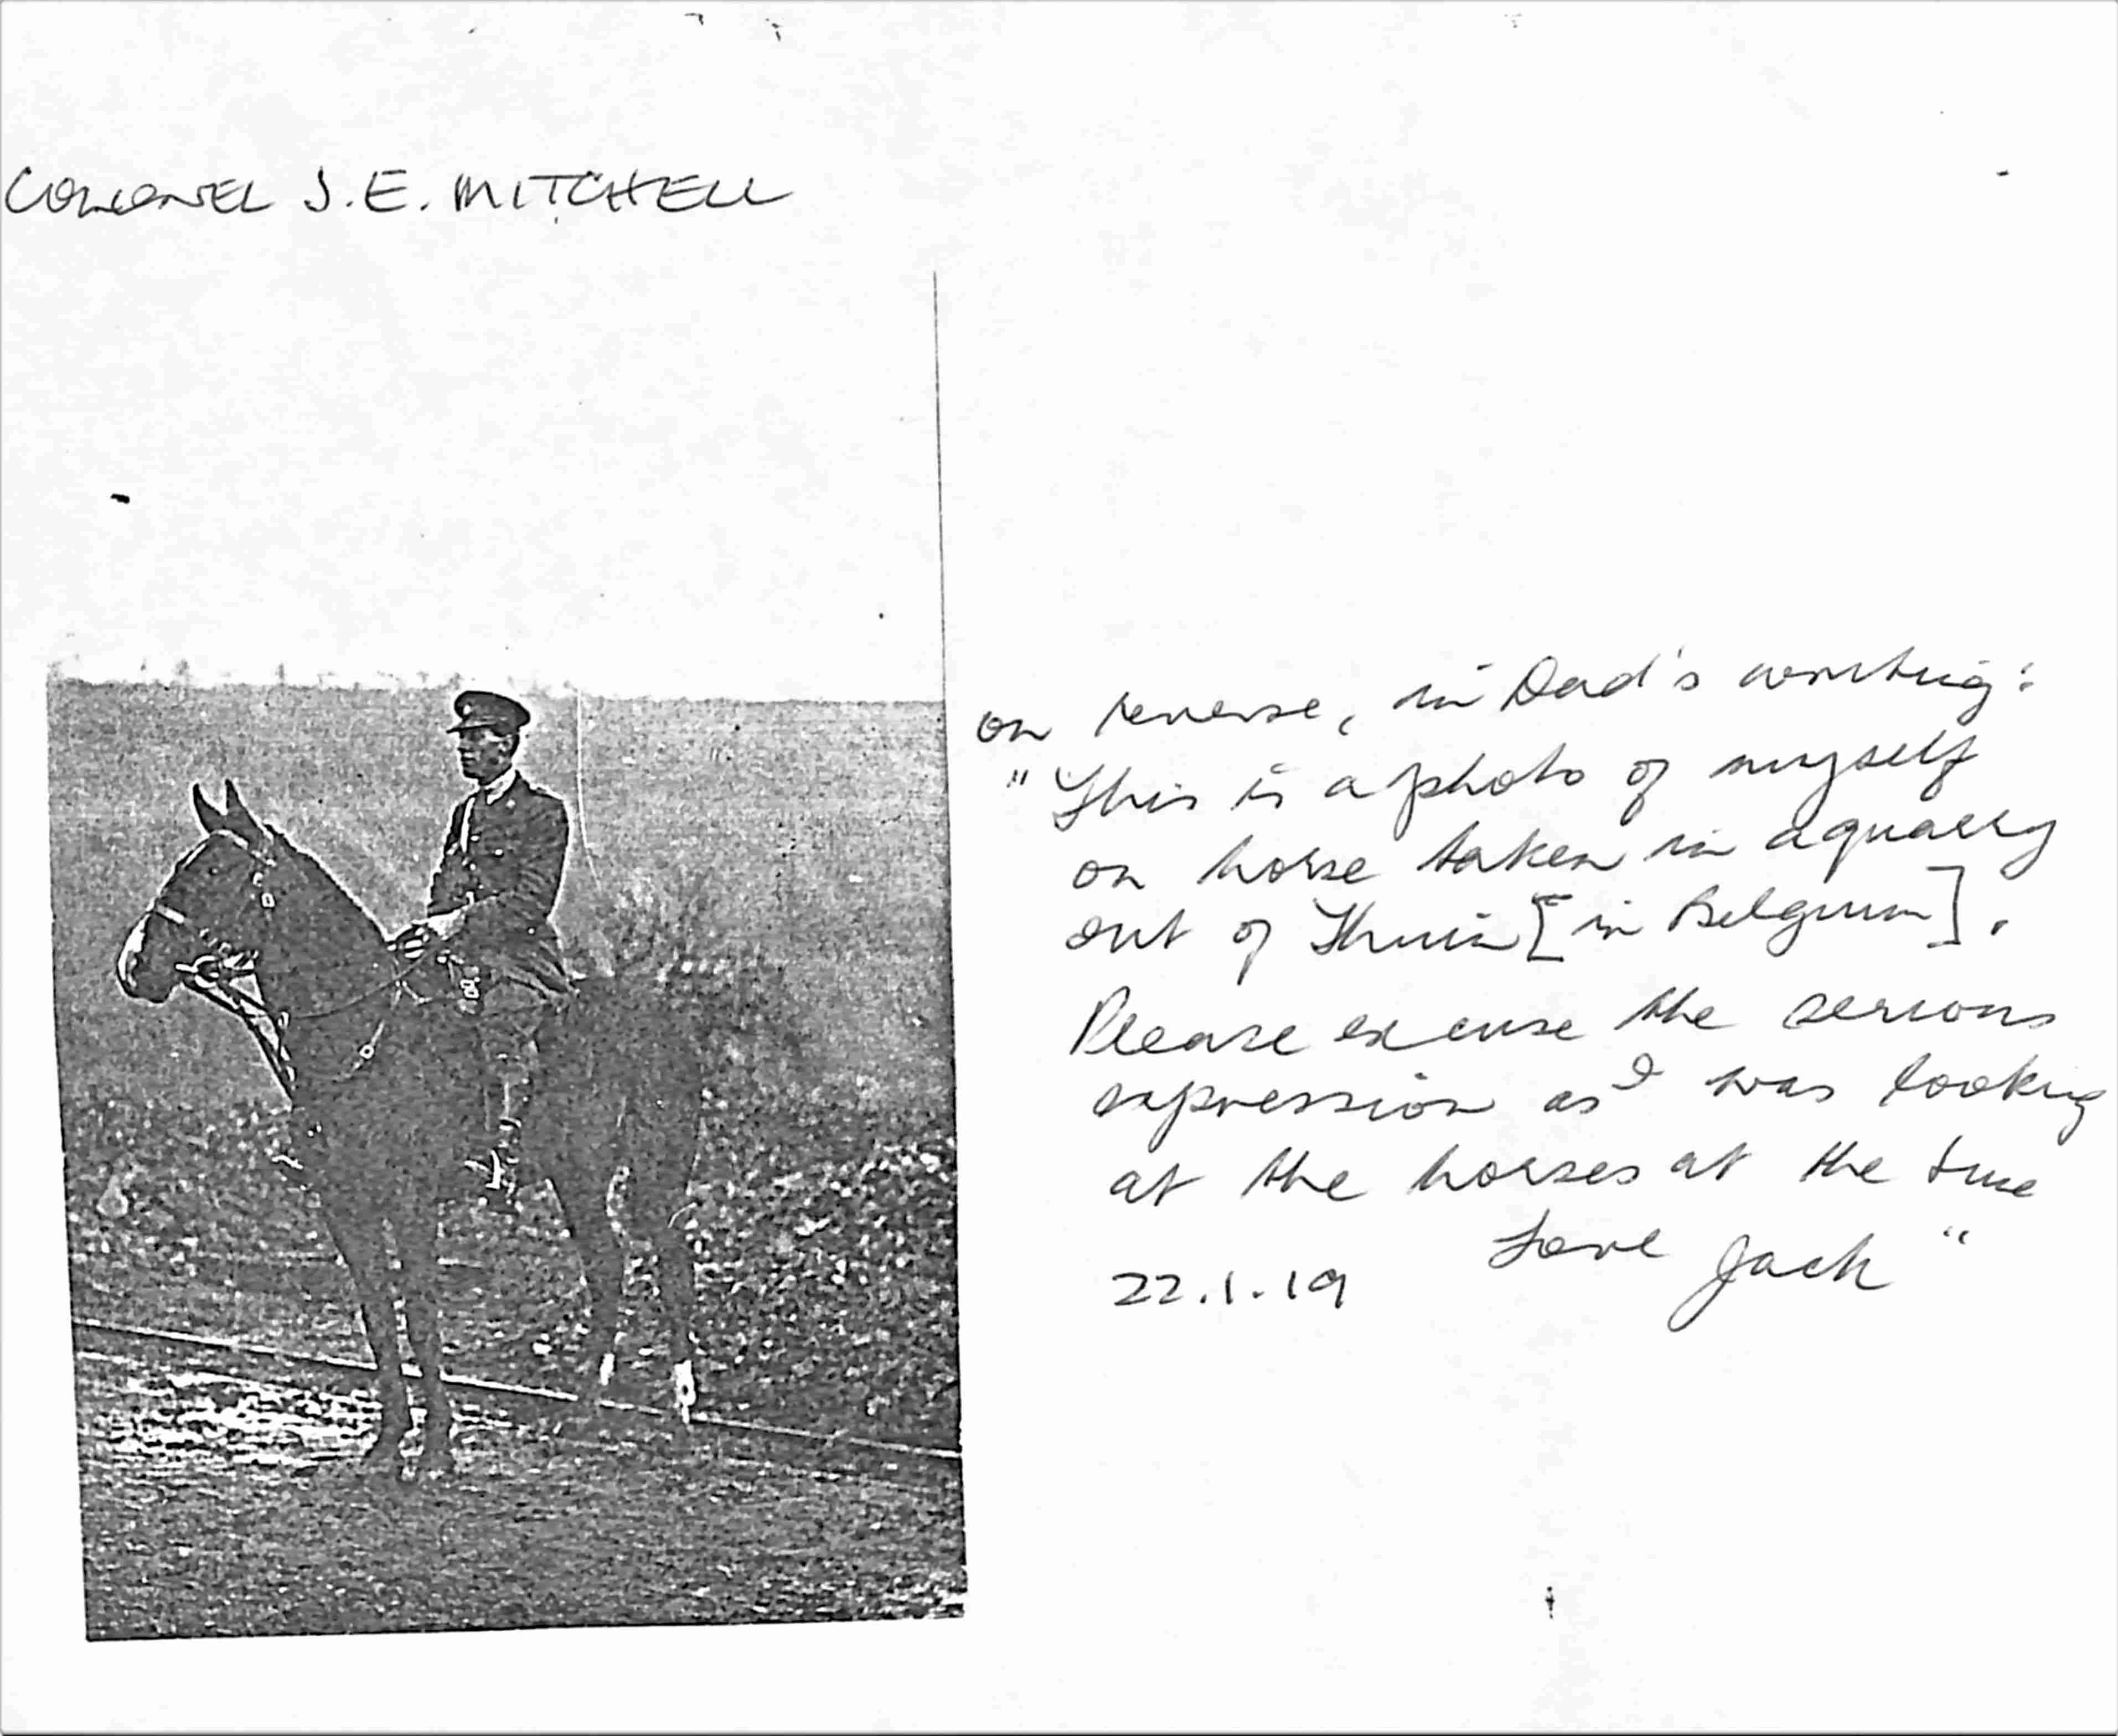 COLONEL J.E. MITCHELL
on reverse, in Dad's writing:
"This is a photo of myself
on horse taken in a quarry
out of Thuin [in Belgium].
Please excuse the serious
expression as I was looking
at the horses at the time
Love Jack"
22.1.19